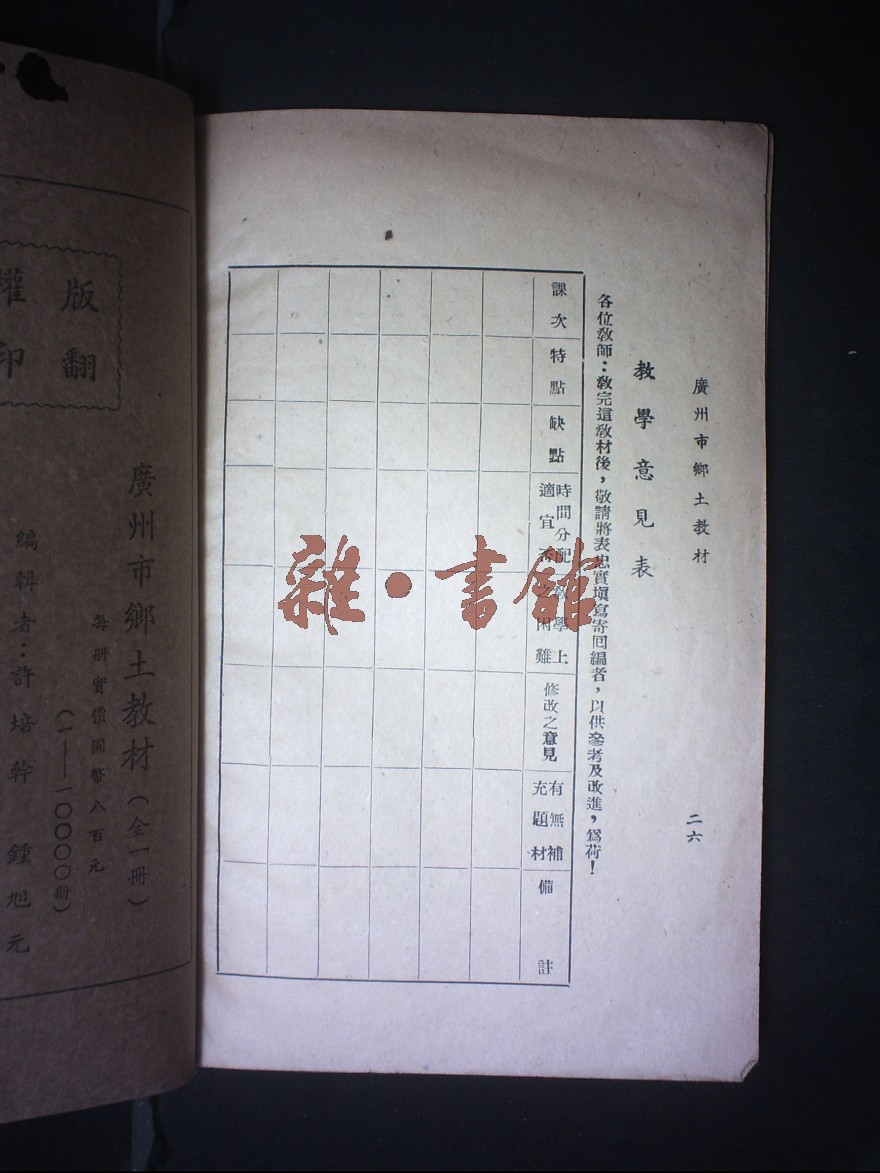 廣州市鄉土教材
二六
教學意見表
各位教師：教完這教材後，敬請將表忠實填寫寄回編者，以供參考及改進，爲荷！
課次
特點
缺點
時間分配
適宜否
教學上
之困難
修改之意見
有無補
充題材
備註
雜·書館
廣州市鄉土教材（全一冊）
每册實價國幣八百元
（一——一〇〇〇〇册）
編輯者：許培幹 鍾旭元
版翻
權印